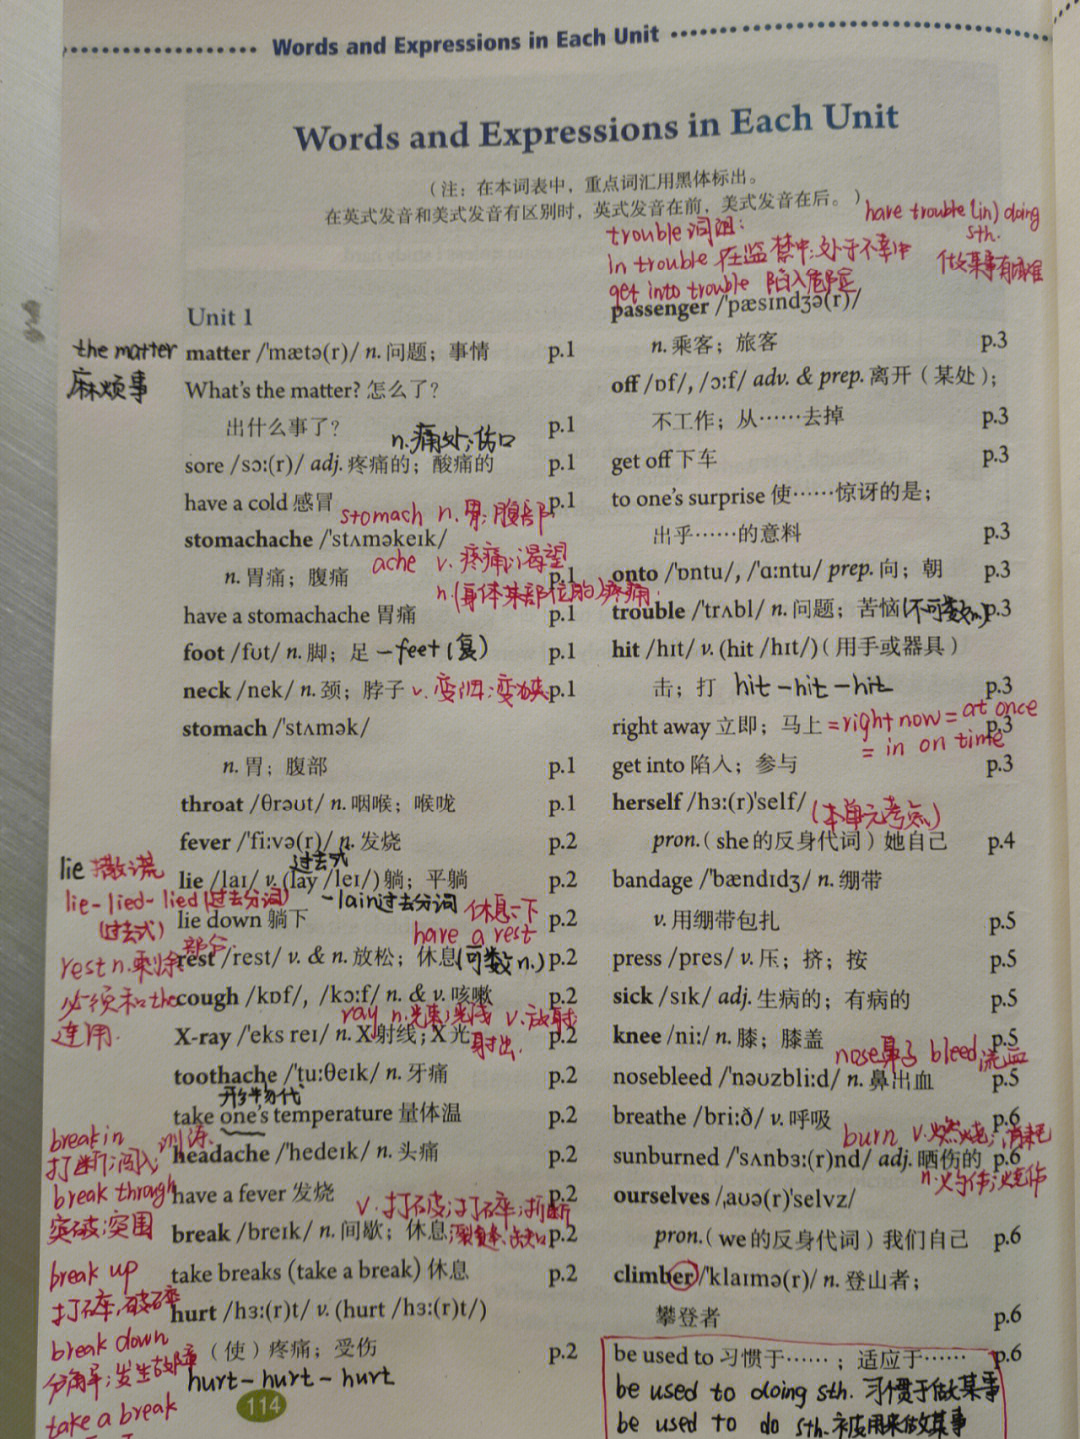 Words and Expressions in Each Unit
Words and Expressions in Each Unit
(注：在本词表中，重点词汇用黑体标出。
在英式发音和美式发音有区别时，英式发音在前，美式发音在后。)
trouble词组:
in trouble 在监禁中;处于不幸中
get into trouble 陷入危险
have trouble (in) doing
sth.
做某事有困难
Unit 1
the matter
麻烦事
matter /ˈmætə(r)/ n. 问题；事情 p.1
What's the matter? 怎么了？
出什么事了？ p.1
n.痛处;伤口
sore /sɔː(r)/ adj. 疼痛的；酸痛的 p.1
have a cold 感冒 p.1
stomach n.胃;腹部
stomachache /ˈstʌməkeɪk/
ache v.疼痛;渴望
n. 胃痛；腹痛 p.1
n.(身体某部位的)疼痛
have a stomachache 胃痛 p.1
foot /fʊt/ n. 脚；足 －feet(复) p.1
neck /nek/ n. 颈；脖子 p.1
stomach /ˈstʌmək/
n. 胃；腹部 p.1
throat /θrəʊt/ n. 咽喉；喉咙 p.1
fever /ˈfiːvə(r)/ n. 发烧 p.2
过去式
lie 撒谎
lie /laɪ/ v. (lay /leɪ/) 躺；平躺 p.2
lie-lied-lied(过去分词)
(过去式)
-lain过去分词
lie down 躺下 p.2
休息一下
have a rest
rest n.剩余部分
必须和the
连用.
rest /rest/ v. & n. 放松；休息(可数n.) p.2
cough /kɒf/, /kɔːf/ n. & v. 咳嗽 p.2
ray n.光束;光线 v.放射;
射出.
X-ray /ˈeks reɪ/ n. X射线；X光 p.2
toothache /ˈtuːθeɪk/ n. 牙痛 p.2
形物代
take one's temperature 量体温 p.2
break in
打断;闯入;训练
headache /ˈhedeɪk/ n. 头痛 p.2
break through
突破;突围
have a fever 发烧 p.2
v.打破;打碎;折断
break /breɪk/ n. 间歇；休息 p.2
break up
打碎;破碎
take breaks (take a break) 休息 p.2
hurt /hɜː(r)t/ v. (hurt /hɜː(r)t/)
break down
分解;发生故障
（使）疼痛；受伤 p.2
hurt-hurt-hurt
take a break
114
passenger /ˈpæsɪndʒə(r)/
n. 乘客；旅客 p.3
off /ɒf/, /ɔːf/ adv. & prep. 离开（某处）；
不工作；从……去掉 p.3
get off 下车 p.3
to one's surprise 使……惊讶的是；
出乎……的意料 p.3
onto /ˈɒntu/, /ˈɑːntu/ prep. 向；朝 p.3
trouble /ˈtrʌbl/ n. 问题；苦恼(不可数n.) p.3
hit /hɪt/ v. (hit /hɪt/)（用手或器具）
击；打 hit-hit-hit p.3
right away 立即；马上 =right now=at once p.3
= in on time
get into 陷入；参与 p.3
herself /hɜː(r)ˈself/ (本单元考点)
pron.（she的反身代词）她自己 p.4
bandage /ˈbændɪdʒ/ n. 绷带
v. 用绷带包扎 p.5
press /pres/ v. 压；挤；按 p.5
sick /sɪk/ adj. 生病的；有病的 p.5
knee /niː/ n. 膝；膝盖 p.5
nose鼻子 bleed流血
nosebleed /ˈnəʊzbliːd/ n. 鼻出血 p.5
breathe /briːð/ v. 呼吸 p.6
burn v.燃烧;消耗
sunburned /ˈsʌnbɜː(r)nd/ adj. 晒伤的 p.6
n.灼伤;烧伤
ourselves /ˌaʊə(r)ˈselvz/
pron.（we的反身代词）我们自己 p.6
climber /ˈklaɪmə(r)/ n. 登山者；
攀登者 p.6
be used to 习惯于……；适应于…… p.6
be used to doing sth. 习惯于做某事
be used to do sth. 被用来做某事